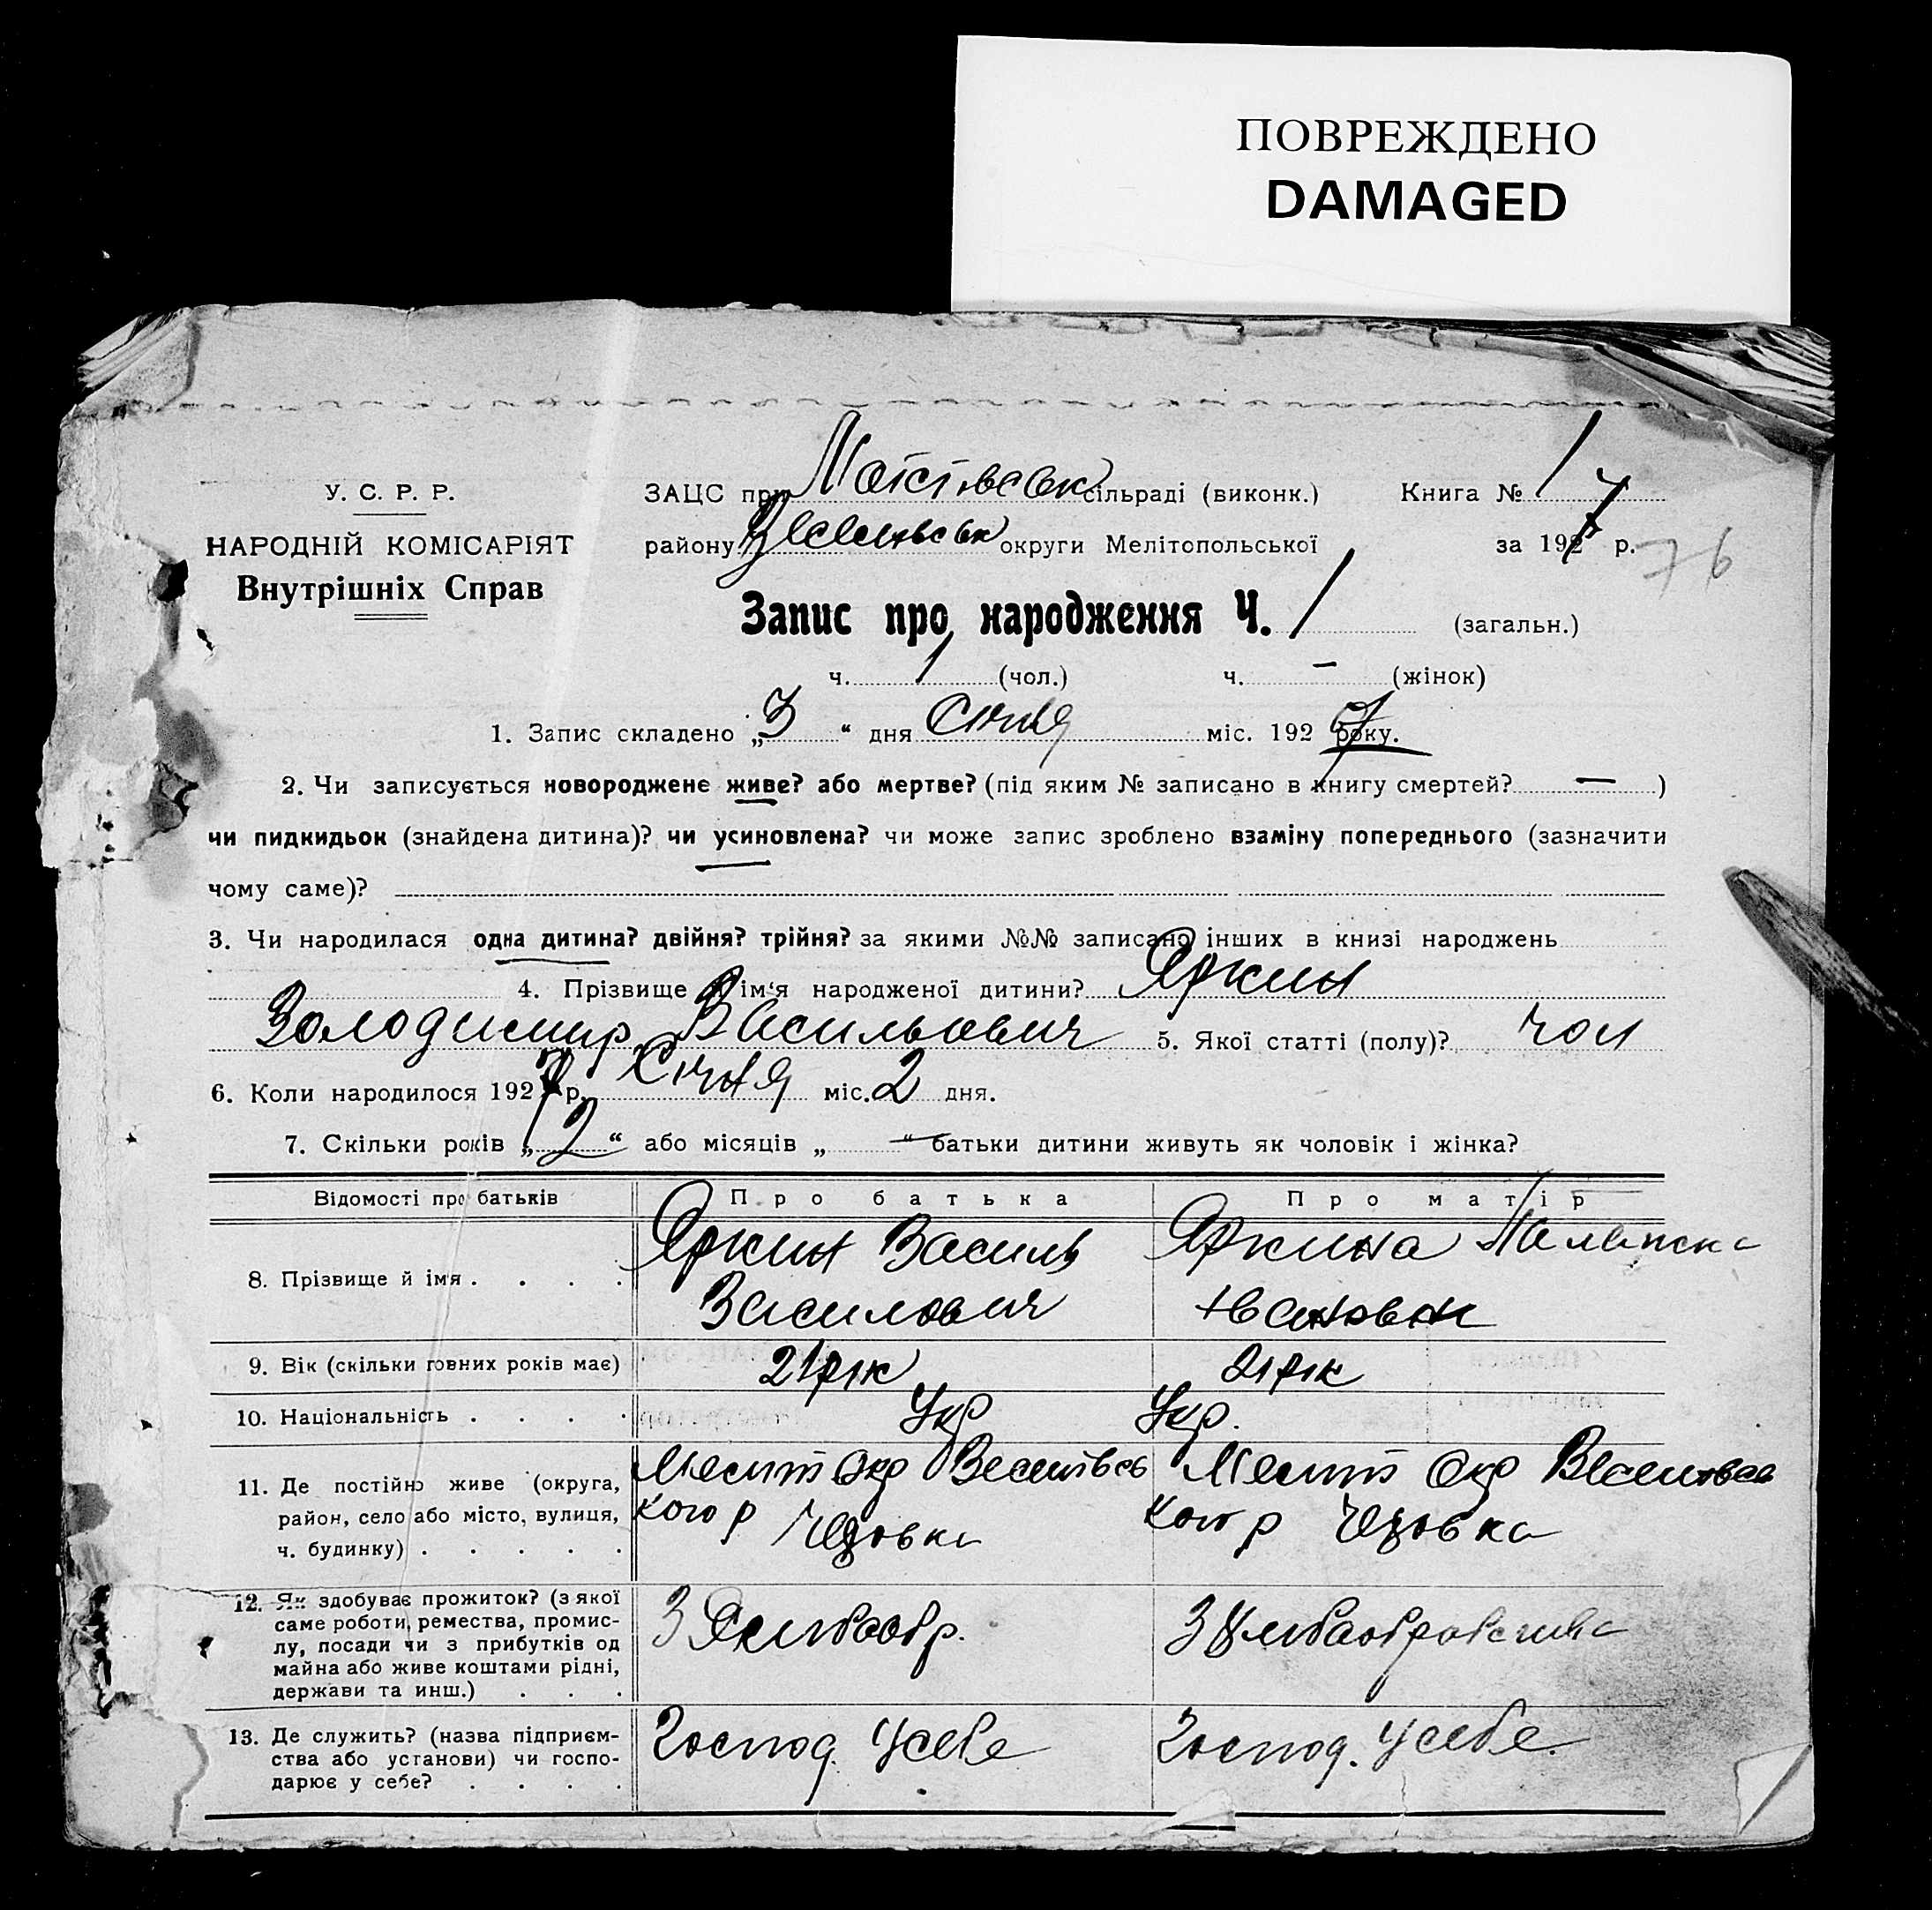 ПОВРЕЖДЕНО
DAMAGED
У. С. Р. Р.
НАРОДНІЙ КОМІСАРІЯТ
Внутрішніх Справ
ЗАЦС при сільраді (виконк.) Книга № 1
району округи Мелітопольської за 1927 р. 76
Запис про народження Ч. 1 (загальн.)
ч. 1 (чол.) ч. — (жінок)
1. Запис складено „3“ дня Січня міс. 1927 року.
2. Чи записується новороджене живе? або мертве? (під яким № записано в книгу смертей? — )
чи пидкидьок (знайдена дитина)? чи усиновлена? чи може запис зроблено взаміну попереднього (зазначити
чому саме)?
3. Чи народилася одна дитина? двійня? трійня? за якими №№ записано інших в книзі народжень
4. Прізвище й ім'я народженої дитини? Яркин
Володимир Васильович 5. Якої статті (полу)? чол
6. Коли народилося 1927 р. Січня міс. 2 дня.
7. Скільки років „2“ або місяців „—“ батьки дитини живуть як чоловік і жінка?
Відомості про батьків Про батька Про матір
8. Прізвище й імя . . . . Яркин Василь Яркина
Василович
9. Вік (скільки повних років має) 21 рік 21 рік
10. Національність . . . . Укр Укр.
11. Де постійно живе (округа, Мелит Окр Веселівсь Мелит Окр Веселівсь
район, село або місто, вулиця, кого р кого р
ч. будинку) . . . . .
12. Як здобуває прожиток? (з якої
саме роботи, ремества, промис-
лу, посади чи з прибутків од
майна або живе коштами рідні,
держави та инш.) . . .
13. Де служить? (назва підприєм- Господ. У себе Господ. У себе.
ства або установи) чи госпо-
дарює у себе? . . . .